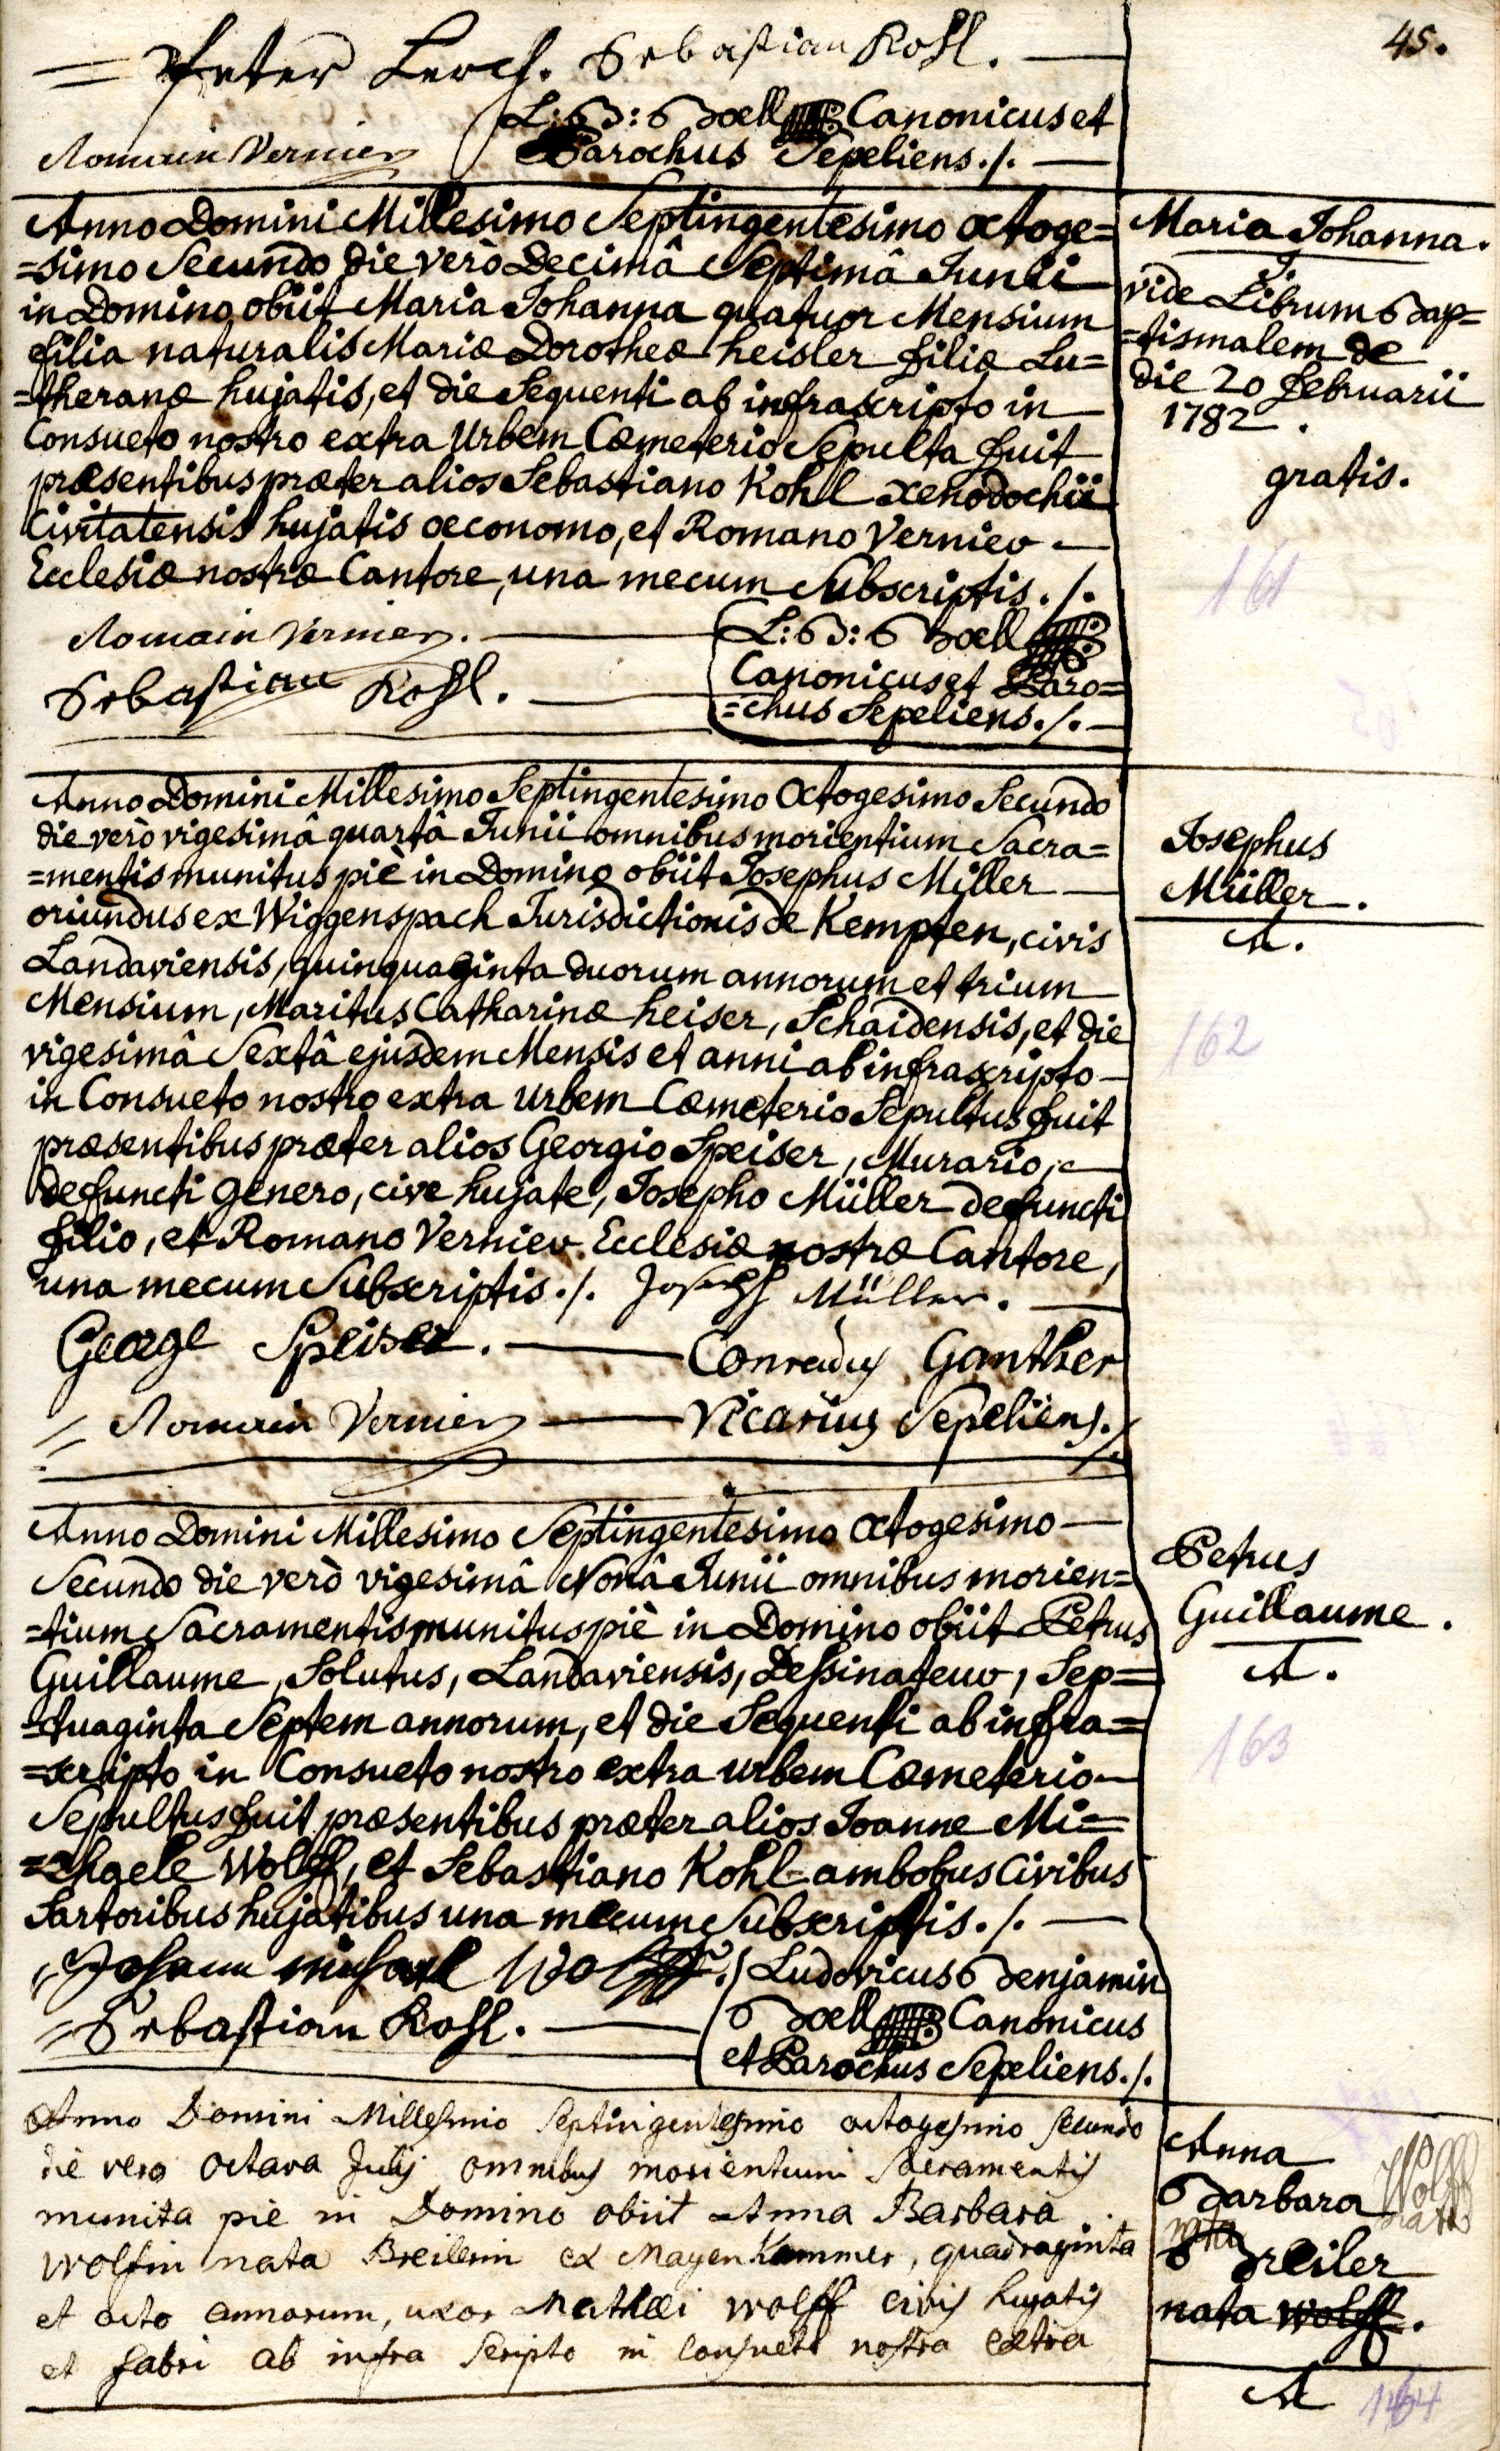 45.
= Peter Lerch. Sebastian Kohl. —
L: B: Boell Canonicus et
Romain Vernier Parochus Sepeliens ./. —
Anno Domini Millesimo Septingentesimo octoge=
=simo Secundo die verò Decimâ Septimâ Junii
in Domino obiit Maria Johanna quatuor Mensium
filia naturalis Mariæ Dorotheæ heisler filiæ Lu=
=theranæ hujatis, et die Sequenti ab infrascripto in
Consueto nostro extra Urbem Cœmeterio Sepulta fuit
præsentibus præter alios Sebastiano Kohl xenodochii
Civitatensis hujatis œconomo, et Romano Vernier —
Ecclesiæ nostræ Cantore, una mecum Subscriptis ./.
Romain Vernier. — L: B: Boell
Sebastian Kohl. — Canonicus et Paro=
=chus Sepeliens ./. —
Maria Johanna.
vide Librum Bap=
=tismalem de
die 20 februarii
1782.
gratis.
161
Anno Domini Millesimo Septingentesimo Octogesimo Secundo
die verò vigesimâ quartâ Junii omnibus morientium Sacra=
=mentis munitus piè in Domino obiit Josephus Miller —
oriundus ex Wiggenspach Jurisdictionis de Kempten, civis
Landaviensis, quinquaginta duorum annorum et trium
Mensium, Maritus Catharinæ heiser, Schaidensis, et die
vigesimâ Sextâ ejusdem Mensis et anni ab infrascripto —
in Consueto nostro extra urbem Cœmeterio Sepultus fuit
præsentibus præter alios Georgio Speiser, Murario, —
defuncti genero, cive hujate, Josepho Müller defuncti
filio, et Romano Vernier Ecclesiæ nostræ Cantore,
una mecum Subscriptis ./. Joseph Müller. —
George Speiser. — Conradus Ganther
Romain Vernier — Vicarius Sepeliens ./.
Josephus
Müller.
A.
162
Anno Domini Millesimo Septingentesimo octogesimo —
Secundo die verò vigesimâ Nonâ Junii omnibus morien=
=tium Sacramentis munitus piè in Domino obiit Petrus
Guillaume, Solutus, Landaviensis, Dessinateur, Sep=
=tuaginta Septem annorum, et die Sequenti ab infra=
=scripto in Consueto nostro extra urbem Cœmeterio —
Sepultus fuit præsentibus præter alios Joanne Mi=
=chaele Wolff, et Sebastiano Kohl ambobus Civibus
Sartoribus hujatibus una mecum Subscriptis ./. —
Johann michael Wolff. Ludovicus Benjamin
Sebastian Kohl. — Boell Canonicus
et Parochus Sepeliens ./.
Petrus
Guillaume.
A.
163
Anno Domini Millesimo Septingentesimo octogesimo secundo
die vero octava Julij omnibus morientium Sacramentis
munita pie in Domino obiit Anna Barbara
wolfin nata Breilerin ex Mayenkammer, quadraginta
et octo annorum, uxor Mathæi wolff civis hujatis
et fabri ab infra scripto in consueto nostro extra
Anna
Barbara Wolff
nata
Breiler
nata wolff.
A
164